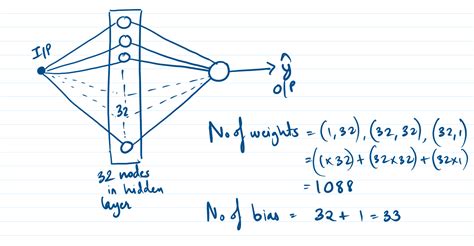 I/P
32
32 nodes
in hidden
layer
ŷ
O/P
No of weights = (1,32), (32,32), (32,1)
= (1×32) + (32×32) + (32×1)
= 1088
No of bias = 32 + 1 = 33